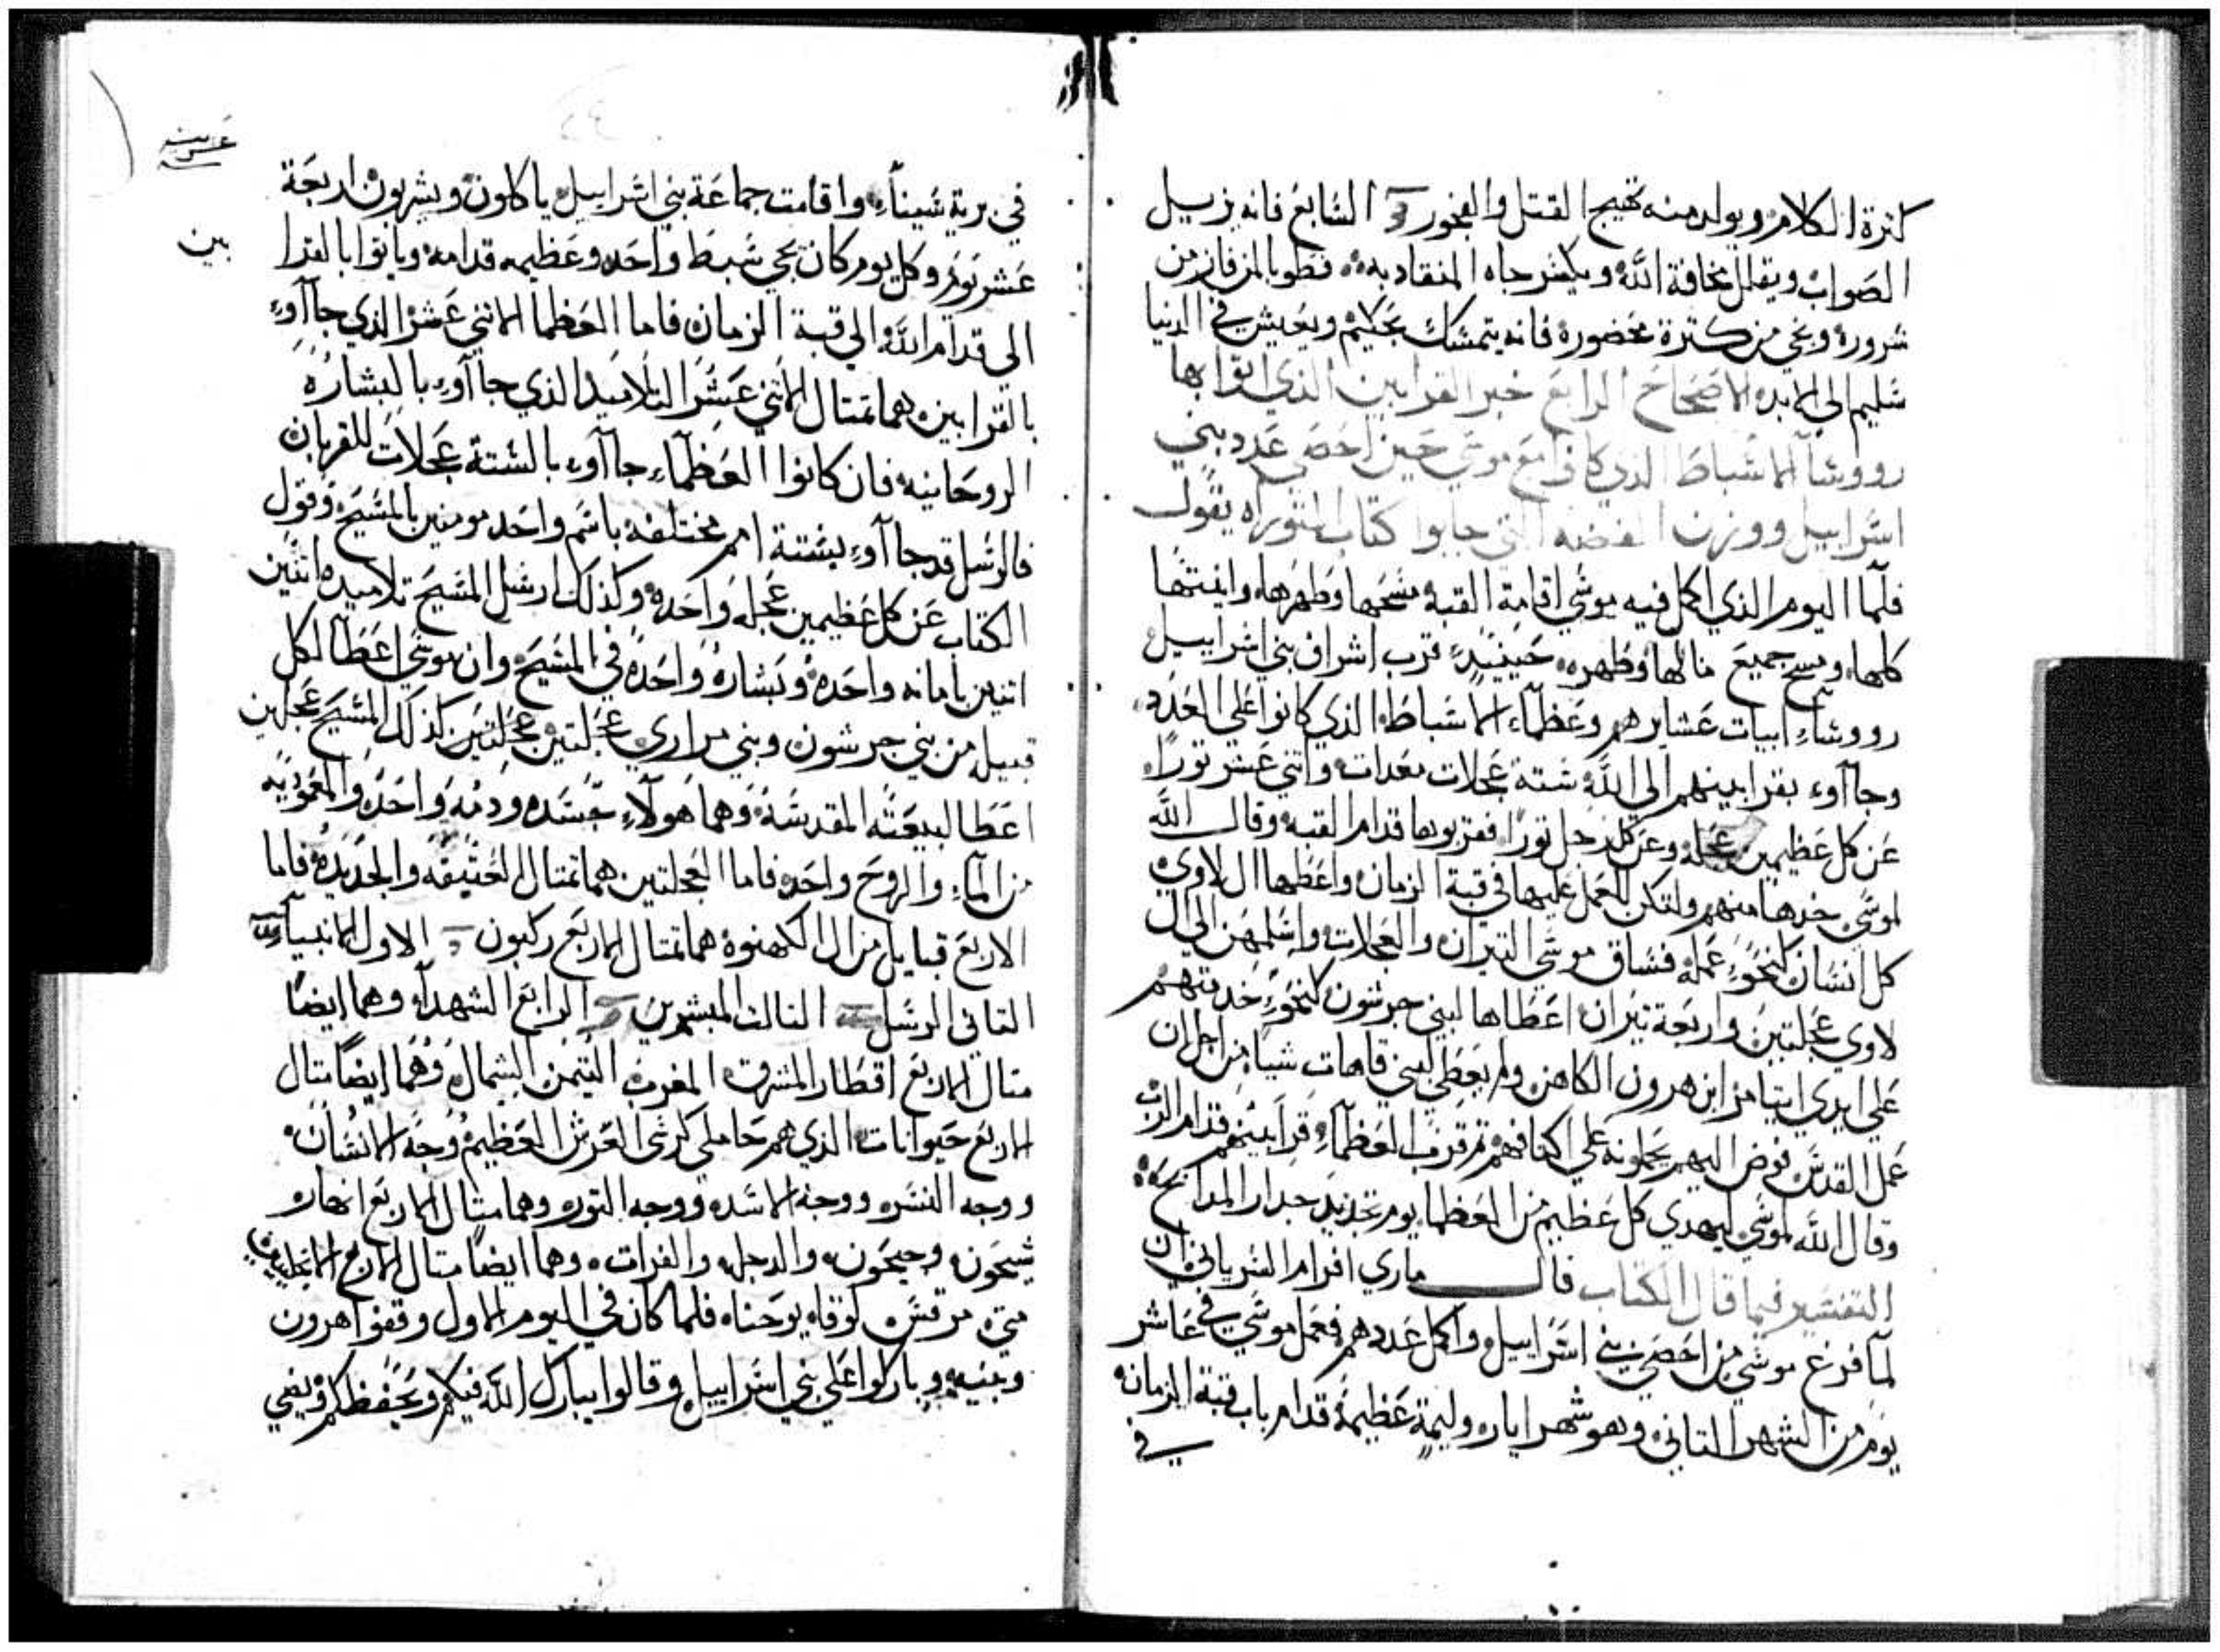 كترة الكلام ويولد منه تهيج القتل والفجور السابع فانه يزيل
الصواب ويقلل مخافة الله ويكتر جاه المنقاد به فطوبا لمن فاز من
شروره ونجي من كترة محضوره فانه يتمسك بحكيم ويعيش في الدنيا
سليم الي الابد الاصحاح الرابع خبر القرابين الذي اتوا بها
رووسآ الاسباط الذي كانوا مع موسي حين احصي عدد بني
اسراييل ووزن الفضه التي جابوا كتاب التوراه يقول
فلما اليوم الذي اكمل فيه موسي اقامة القبه مسحها وطهرها وانيتها
كلها ومسح جميع مالها وطهره حينيدٍ قرب اشراف بني اسراييل
رووساء ابيات عشايرهم وعظمآء الاسباط الذي كانوا علي العدد
وجآاوء بقرابينهم الي الله ستة عجلات معدات واتني عشر توراً
عن كل عظيمين عجله وعن كل رجل توراً فقربوها قدام القبه وقال الله
لموسي خدها منهم ولتكن للعمل عليها في قبة الزمان واعطها ال لاوي
كل انسان كنحو عمله فساق موسي التيران والعجلات واسلمهن الي ال
لاوي عجلتين واربعة تيران اعطاها لبني جرشون كنحو خدمتهم
علي ايدي ايتيامر ابن هرون الكاهن ولم يعطي لبني قاهات شياً من اجل ان
عمل القدس فوض اليهم يحملونه علي اكتافهم تم قرب العظمآء قرابينهم قدام الرب
وقال الله لموسي ليهدي كل عظيم من العظما يوم تجديد جدار المدابح
التفسير فيما قال الكتاب قال ماري افرام السرياني ان
لما فرغ موسي من احصي بني اسراييل واكمل عددهم فعمل موسي في عاشر
يوم من الشهر التاني وهو شهر ايار وليمة عظيمة قدام باب قبة الزمان
في
في برية سيناء واقامت جماعة بني اسراييل ياكلون ويشربون اربعة
عشر يوم وكل يوم كان يجي سبط واحد وعظيمه قدامه وياتوا بالقرا
بين
الي قدام الله الي قبة الزمان فاما العظما الاتني عشر الذي جاآوء
بالقرابين هما تمتال الاتني عشر التلاميد الذي جاآوء بالبشاره
الروحانيه فان كانوا العظمآء جاآوء بالستة عجلات للقربان
فالرسل قد جاآوء بستة امم مختلفه باسم واحد مومنين بالمسيح وقول
الكتاب عن كل عظيمين عجله واحده وكذلك ارسل المسيح تلاميده اتنين
اتنين بامانه واحده وبشاره واحده في المسيح وان موسي اعطا لكل
قبيله من بني جرشون وبني مراري عجلتين عجلتين كذلك المسيح عجلتين
اعطا لبيعته المقدسه وهما هولآء جسده ودمه واحده والمعموديه
من المآء والروح واحده فاما العجلتين هما تمتال العتيقه والجديده فاما
الاربع قبايل من ال الكهنوه هما تمتال الاربع ركبون الاول الانبيآء
التاني الرسل التالت المبشرين الرابع الشهدآء وهما ايضاً
متال الاربع اقطار المشرق المغرب التيمن الشمال وهما ايضاً متال
الاربع حيوانات الذي هم حاملي كرسي العرش العظيم وجه الانسان
ووجه النسر ووجه الاسد ووجه التور وهما متال الاربع انهار
شيحون وجيحون والدجله والفرات وهما ايضاً متال الاربع الانجليين
متي مرقس لوقا يوحنا فلما كان في اليوم الاول وقفوا هرون
وبنيه وباركوا علي بني اسراييل وقالوا يبارك الله فيكم ويحفظكم ويضي